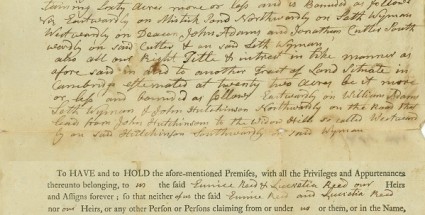 taining Sixty Acres more or less and is Bounded as follows
viz Eastwardly on Mistick Pond Northwardly on Seth Wyman
Westwardly on Deacon John Adams and Jonathan Cutler South
werdly on said Cutler & on said Seth Wyman
also all our Right Title & intrest in like manner as
afore said in and to another tract of Land Situate in
Cambridge estemated at twenty two acres be it more
or less and bounded as follows Eastwardly on William Adams
Seth Wyman & John Hutchinson Northwardly on the Road that
lead from John Hutchinsons to the Widow Hills so called Westward
ly on said Hutchinson Southwardly on said Wyman
To HAVE and to HOLD the afore-mentioned Premises, with all the Privileges and Appurtenances
thereunto belonging, to us the said Eunice Reed & Lucretia Reed our Heirs
and Assigns forever; so that neither of us the said Eunice Reed and Lucretia Reed
nor our Heirs, or any other Person or Persons claiming from or under us or them, or in the Name,